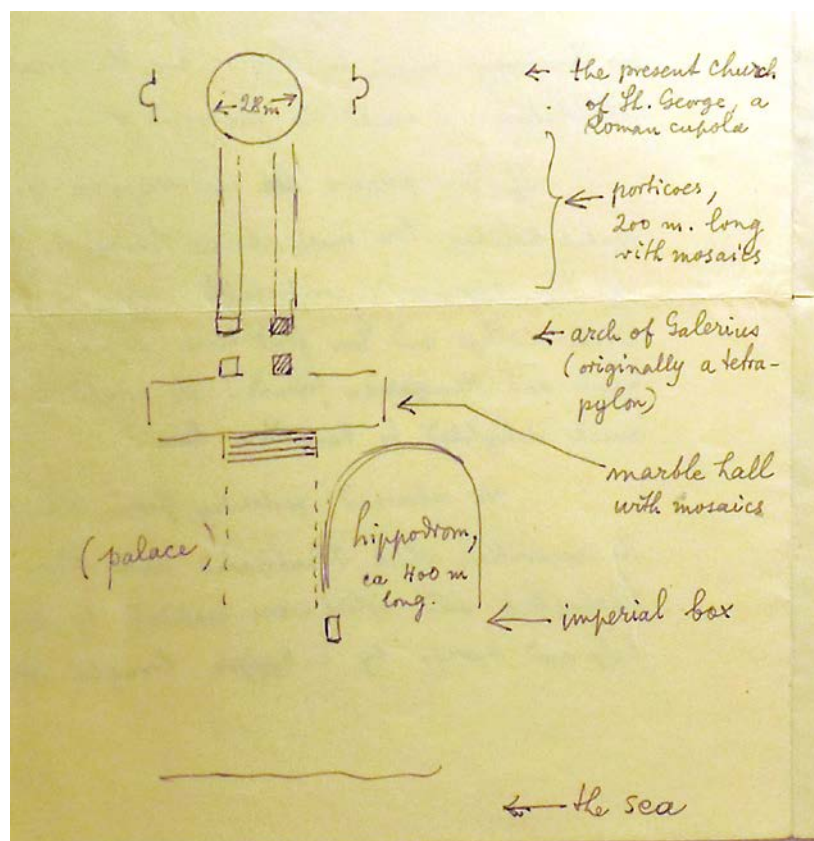 28m
← the present church
of St. George, a
Roman cupola
← porticoes,
200 m. long
with mosaics
← arch of Galerius
(originally a tetra-
pylon)
← marble hall
with mosaics
(palace)
hippodrom,
ca 400 m
long.
← imperial box
← the sea